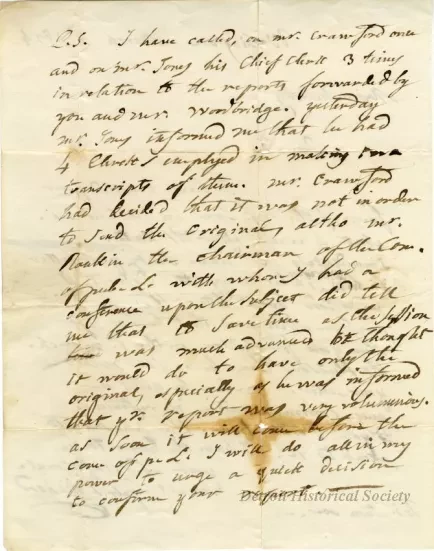 P.S. I have called, on Mr. Crawford one
and on Mr. Jones his Chief Clerk 3 times
in relation to the reports forwarded by
you and Mr. Woodbridge. yesterday
Mr. Jones informed me that he had
4 Clerks employed in making
transcripts of them. Mr. Crawford
had decided that it was not in order
to send the original, altho Mr.
Rankin the chairman of the Com.
of pub. L. with whom I had a
conference upon the subject did tell
me that to save time as the Session
was much advanced he thought
it would do to have only the
original, especially as he was informed
that yr. report was very voluminous.
as soon it will come before the
Come of p. L. I will do all in my
power to urge a quick decision
to confirm your report
Detroit Historical Society